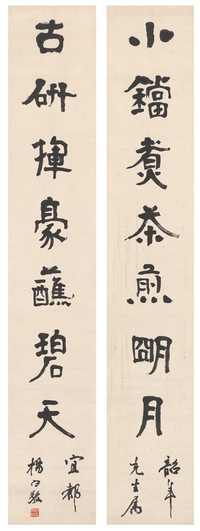 小鐺煮茶煎朙月
韶年
先生属
古研揮豪蘸碧天
宜都
楊守敬